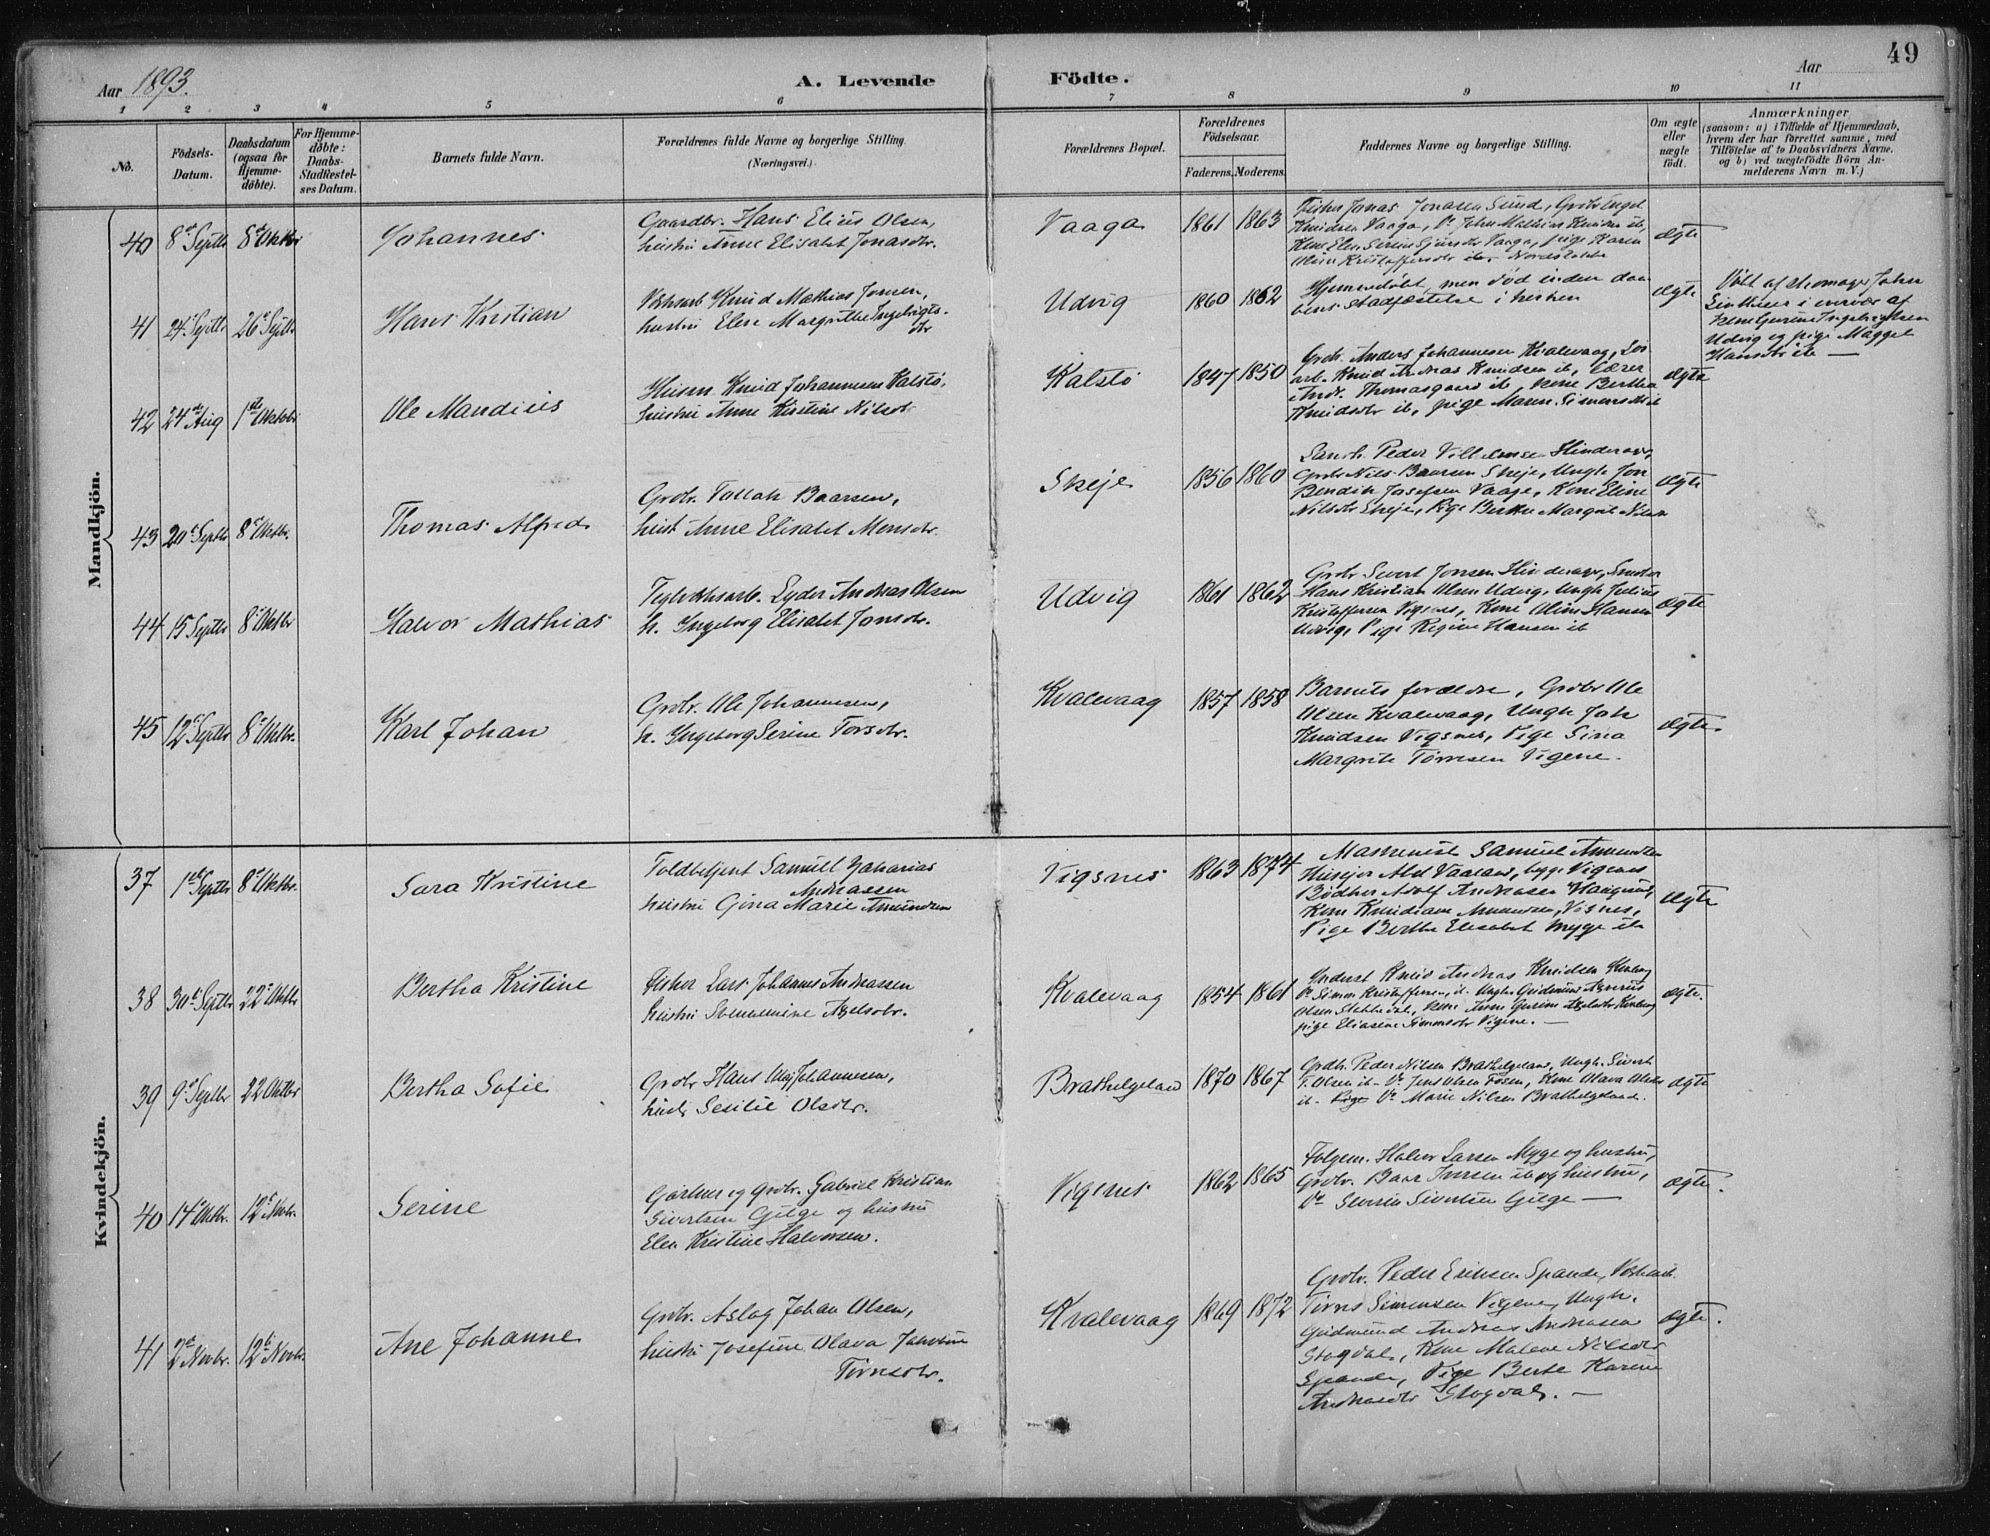 49
Aar 1893.
A. Levende Födte.
Aar
1 2 3 4 5 6 7 8 9 10 11
No.
Födsels-
Datum.
Daabsdatum
(ogsaa for
Hjemme-
døbte).
For Hjemme-
døbte:
Daabs-
StadRestel-
ses Datum.
Barnets fulde Navn.
Forældrenes fulde Navne og borgerlige Stilling.
(Næringsvei.)
Forældrenes Bopæl.
Forældrenes
Födselsaar.
Faderens. Moderens.
Faddernes Navne og borgerlige Stilling.
Om ægte
eller
uægte
født.
Anmærkninger
(saasom: a) i Tilfælde af Hjemmedaab,
hvem der har forrettet samme, med
Tilföielse af to Daabsvidners Navne,
og b) ved uægtefödte Börn An-
melderens Navn m. V.)
Mandkjön.
40 8de Septbr 8de Oktbr
Johannes
Gaardbr. Hans Elius Olsen,
hustru Anne Elisabet Jonasdtr.
Vaaga
1861 1863
Fisker Jonas Jonasen Sund, Grdbr Engel
Knudsen Vaaga, Do John Mathias Knudsen ib,
Kone Elen Serine Vaaga, pige Karen
Oline Kristoffersdtr
ægte
41 24de Septbr 26de Septbr
Hans Kristian
Knud Mathias Jonsen,
hustru Elen Margrethe Ingebrigts-
dtr
Udvig
1860 1862
Hjemmedøbt, men død inden daa-
bens stadfæstelse i kirken
ægte
Døbt af skomager John
i nærvær af
Kone Gurine Ingebrigtsen
Udvig og pige Magget
Hansdtr ib —
42 24de Aug 1ste Oktobr
Ole Mandius
Husm Knud Johannesen Kalstø,
hustru Anne Kirstine Nilsdtr.
Kalstø
1847 1850
Grdbr. Anders Johannesen Kvalevaag,
arb. Knud Andreas Knudsen ib, Lærer
Andr. Thomasgaard ib, Kone Bertha
Knudsdtr ib, pige Maren Simonsdtr ib
ægte
43 20de Septbr 8de Oktbr.
Thomas Alfred
Grdbr. Tollak Baarsen,
hust. Anne Elisabet Monsdtr.
Skeje
1856 1860
Peder Villumsen Hinderager,
Grdbr Nils Baarsen Skeje, Ungk Jon
Bendik Josefsen Vaage, Kone Eline
Nilsdtr Skeje, Pige Berthe Margrit Nilsen
ægte
44 15 Septbr 8de Oktbr
Halvor Mathias
Teglverksarb. Lyder Andreas Olsen
h. Ingeborg Elisabet Jonsdtr.
Udvig
1861 1862
Grdbr Sivert Jonsen Hinderager,
Hans Kristian Olsen Udvig, Ungk Julius
Kristoffersen Vigsnes, Kone Oline Hansen
Udvig, Pige Regine Hansen ib
ægte
45 12te Septbr 8de Oktbr.
Karl Johan
Grdbr. Ole Johannesen,
h. Ingeborg Serine Torsdtr.
Kvalevaag
1857 1858
Barnets forældre, Grdbr Ole
Olsen Kvalevaag, Ungk Joh
Knudsen Vigsnes, Pige Sina
Margrete Tørresen Vigene.
ægte.
Kvindekjön.
37 1ste Septbr 8de Oktbr
Sara Kristine
Toldbetjent Samuel Zakarias
Andreasen
hustru Gina Marie Amundsen
Vigsnes
1863 1874
Maskinist Samuel Amundsen
Husejer Abel Vaaland, begge Vigsnes
Bødker Adolf Andreasen Haugesund,
Kone Knudiane Amundsen, Visnes,
Pige Berthe Elisabet Myge ib
ægte
38 30te Septbr 22de Oktbr
Bertha Kristine
Fisker Lars Johannes Andreassen
hustru Svennemine Axelsdtr.
Kvalevaag
1854 1861
Inderst Knud Andreas Knudsen
Do Simon Kristoffersen, ib
Olsen Stokkedal, Kone Anne Gurine Axelsdtr
pige Eliasene Simonsdtr Vigene. —
ægte.
39 9de Septbr 22 Oktbr
Bertha Sofie
Grdbr Hans Olaj Johannesen,
hustr Sesilie Olsdtr.
Brathelgeland
1870 1867
Grdbr. Peder Nilsen Brathelgeland, Ungk. Sivert
T. Olsen ib - Do Jens Olsen Fosen, Kone Olava Olsdtr
ib - Pige Do Marie Nilsen Brathelgeland.
ægte
40 14de Oktbr. 12te Novbr.
Serine
Gartner og grdbr. Gabriel Kristian
Sivertsen Gjelge og hustru
Elen Kristine Halvorsen.
Vigsnes
1862 1865
Folgem. Halvor Larsen Myge og hustru,
Grdbr. Baar Iversen ib og hustru,
Do Severin Sivertsen Gjelge —
ægte.
41 2de Novbr. 12te Novbr.
Ane Johanne
Grdbr. Aslag Johan Olsen,
hustru Josefine Olava Jakobine
Tørresdtr.
Kvalevaag
1869 1872
Grdbr. Peder Eriksen Spande,
Tørres Simonsen Vigene, Ungk.
Gudmund Andreas Andreasen
Stogdal, Kone Malene Nilsdtr
Spande, Pige Berte Karine
Andreasdtr Stogdal. —
ægte.